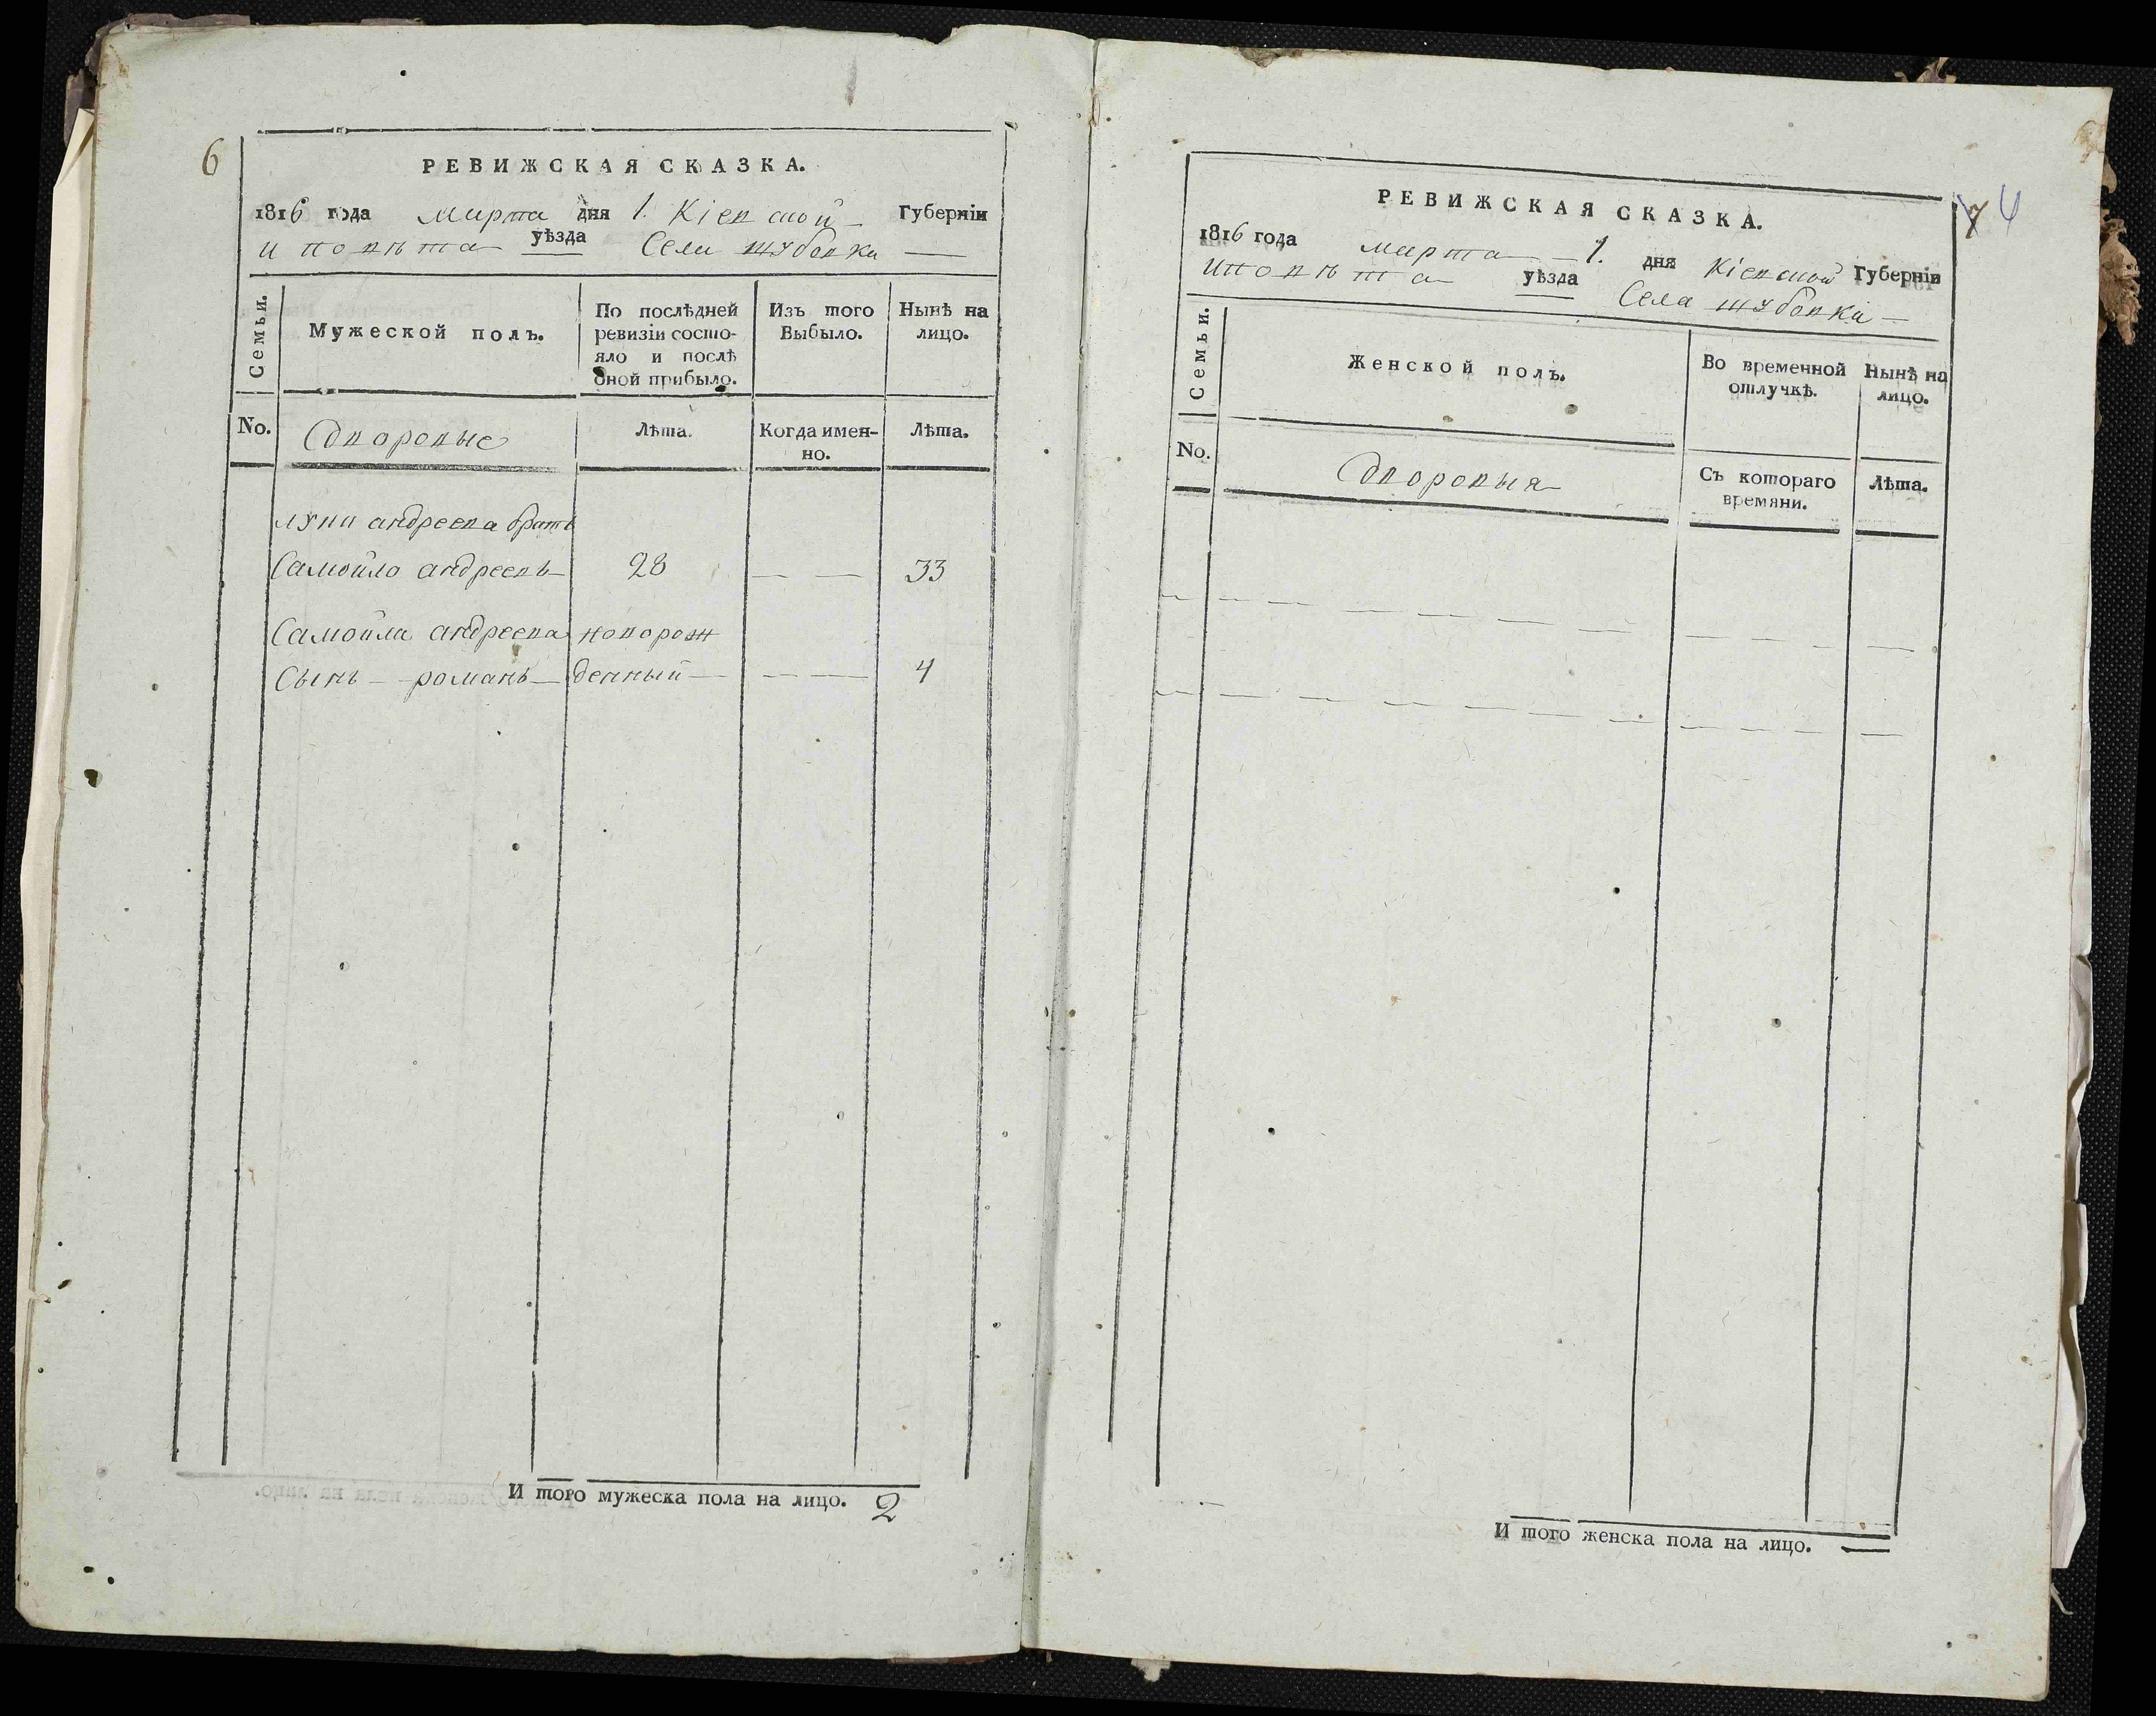 6
РЕВИЖСКАЯ СКАЗКА.
1816 года Марта дня 1. Кіевской Губерніи
и повѣта уѣзда Села шубовки
Семьи.
Мужеской полъ.
По послѣдней ревизіи состояло и послѣ оной прибыло.
Изъ того Выбыло.
Нынѣ на лицо.
No.
Дворовые
Лѣта.
Когда именно.
Лѣта.
андреева братъ
Самойло андреевъ 28 — — 33
Самойла андреева новорож
Сынъ — романъ — денный — — — 4
И того мужеска пола на лицо. 2
7 4
РЕВИЖСКАЯ СКАЗКА.
1816 года марта 1. дня Кіевской Губерніи
и повѣта уѣзда Села шубовки
Семьи.
Женской полъ.
Во временной отлучкѣ.
Нынѣ на лицо.
No.
Дворовыя
Съ котораго времяни.
Лѣта.
И того женска пола на лицо. —